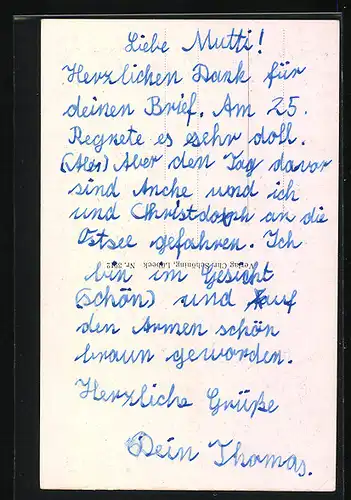 Liebe Mutti!
Herzlichen Dank für
deinen Brief. Am 25.
Regnete es sehr doll.
(Aber) Aber den Tag davor
sind Anche und ich
und Christdoph an die
Ostsee gefahren. Ich
bin im Gesicht
Verlag Chr. Schöning, Lübeck Nr.
(schön) und auf
den Armen schön
braun geworden.
Herzliche Grüße
Dein Thomas.